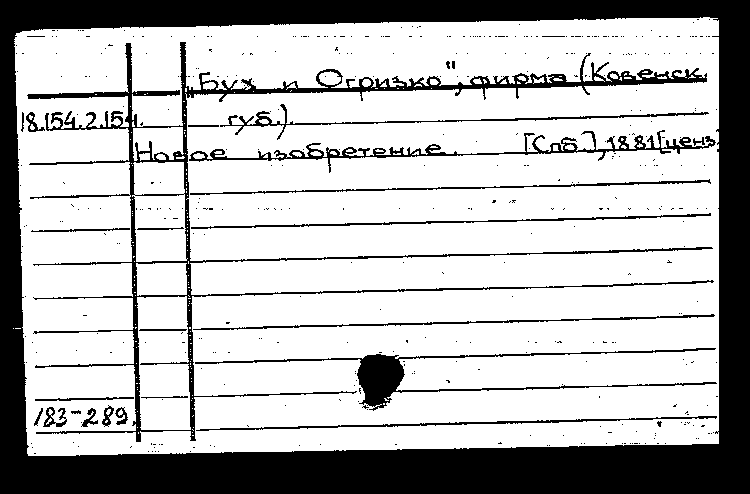 „Бух и Огризко", фирма (Ковенск.
18.154.2.154. губ.).
Новое изобретение. [Спб.], 1881[ценз
183-289.